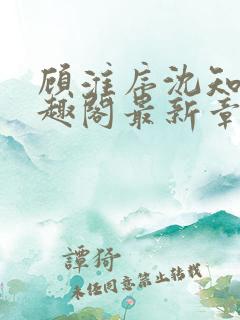 顾淮辰沈知
趣阁最新章
譚猗
未经同意禁止转载